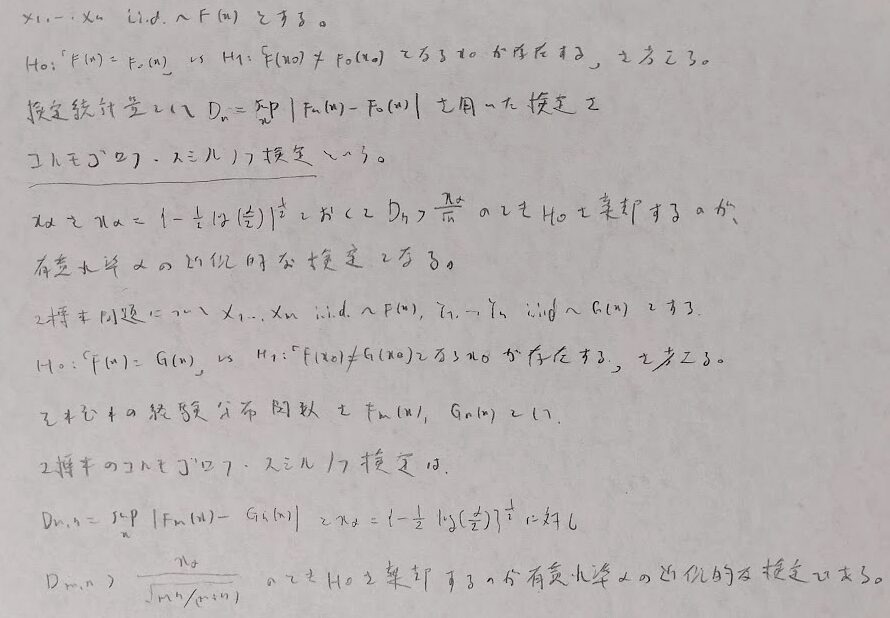 X1, … Xn i.i.d. ~ F(x) とする。
H0:「F(x) = F0(x)」 vs H1:「F(x0) ≠ F0(x0) となるx0が存在する」を考える。
検定統計量として Dn = sup_x |Fn(x) - F0(x)| を用いた検定を
コルモゴロフ・スミルノフ検定という。
xα を xα = {-1/2 log(α/2)}^{1/2} とおくと Dn > xα/√n のときH0を棄却するのが、
有意水準αの近似的な検定となる。
2標本問題について X1, … Xm i.i.d. ~ F(x), Y1, … Yn i.i.d ~ G(x) とする.
H0:「F(x) = G(x)」 vs H1:「F(x0) ≠ G(x0) となるx0が存在する」を考える。
それぞれの経験分布関数を Fm(x), Gn(x) とし.
2標本のコルモゴロフ・スミルノフ検定は.
Dm,n = sup_x |Fm(x) - Gn(x)| と xα = {-1/2 log(α/2)}^{1/2} に対し
Dm,n > xα/√(mn/(m+n)) のときH0を棄却するのが有意水準αの近似的な検定である。